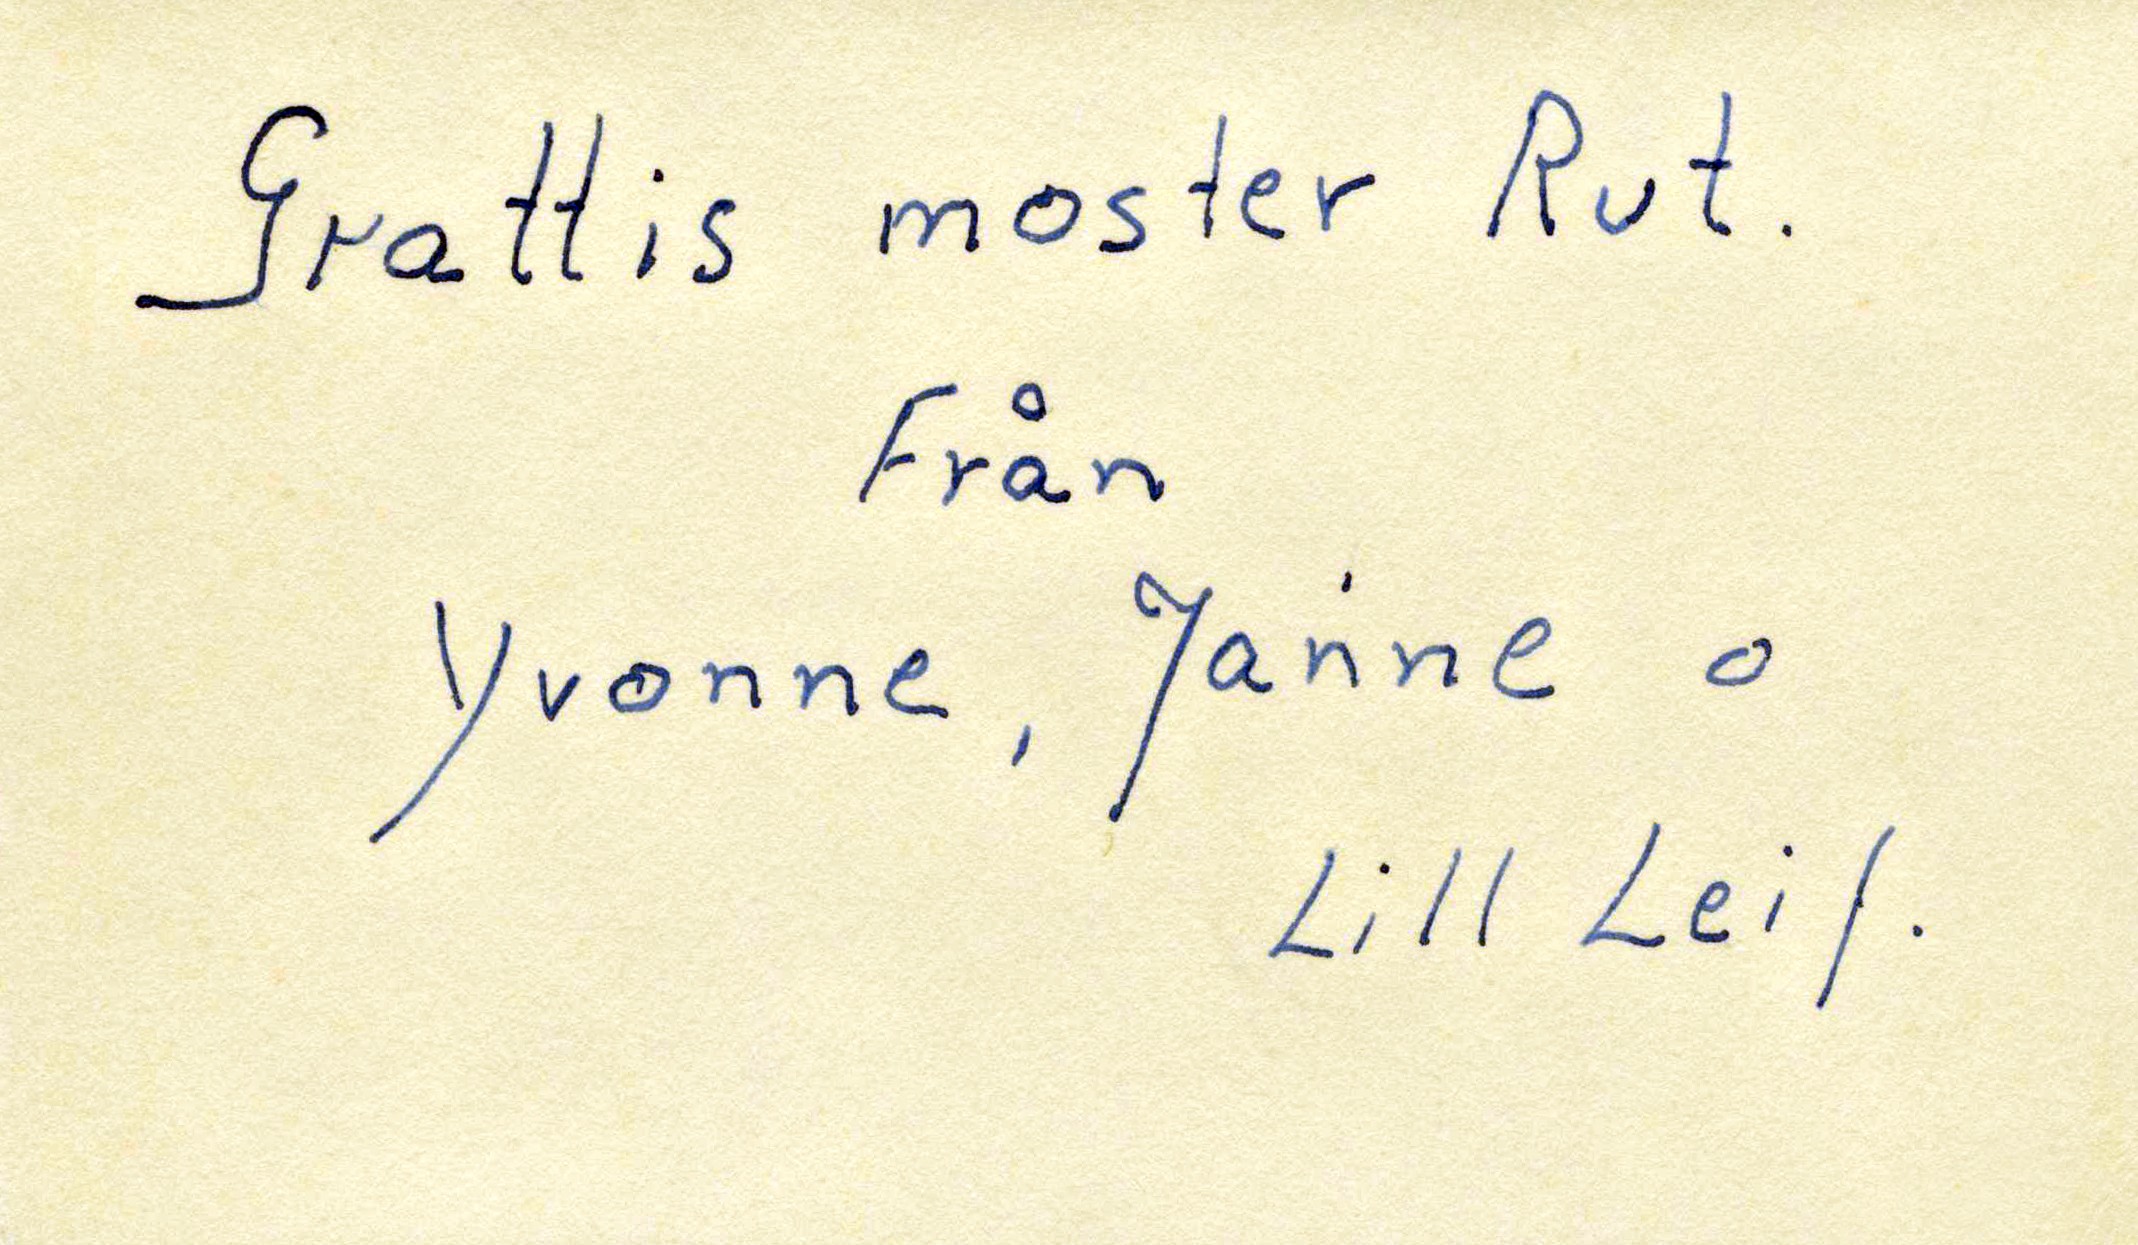 Grattis moster Rut.
Från
Yvonne, Janne o
Lill Leif.